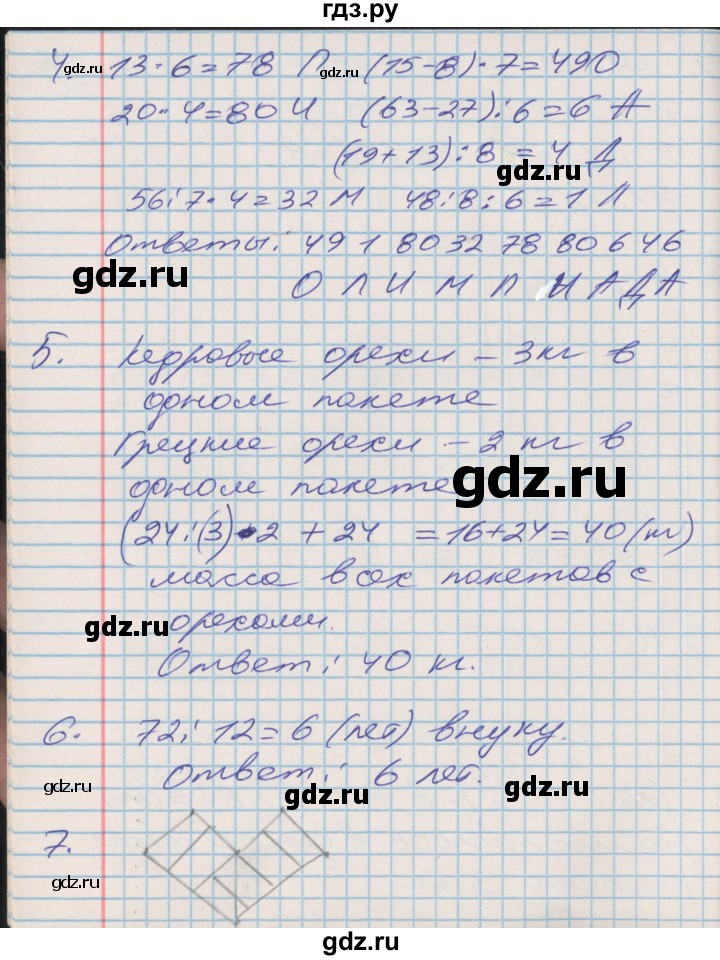 гдз.ру
4. 13·6=78 П (15-8)·7=49О
gdz.ru gdz.ru
20·4=80 И (63-27):6=6 А
(19+13):8=4 Д
gdz.ru
56:7·4=32 М 48:8:6=1 Л
Ответы: 49 1 80 32 78 80 6 4 6
gdz.ru
О Л И М П И А Д А
5. Кедровые орехи – 3 кг в
одном пакете
Грецкие орехи – 2 кг в
gdz.ru
одном пакете
(24:(3)·2 + 24 = 16+24=40 (кг)
масса всех пакетов с
gdz.ru
орехами.
Ответ: 40 кг.
gdz.ru
6. 72:12=6 (лет) внуку.
Ответ: 6 лет.
gdz.ru gdz.ru gdz.ru
7.
gdz.ru
gdz.ru